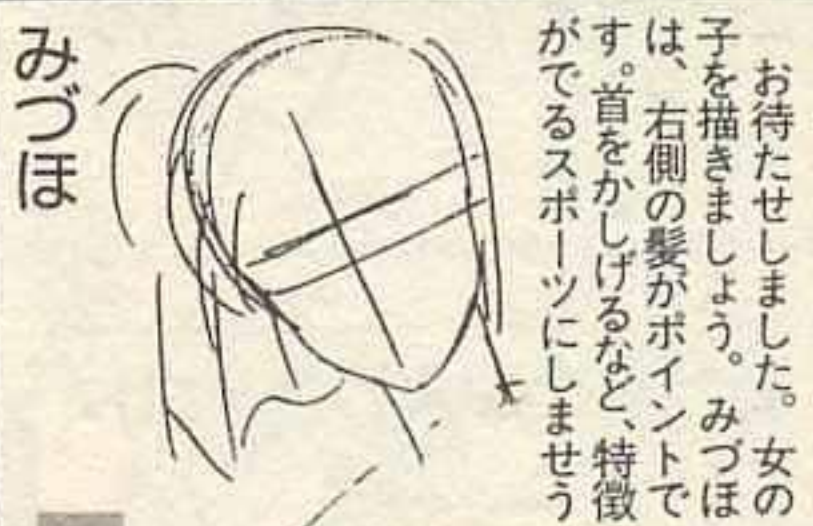 お待たせしました。女の
子を描きましょう。みづほ
は、右側の髪がポイントで
す。首をかしげるなど、特徴
がでるスポーツにしませう
みづほ